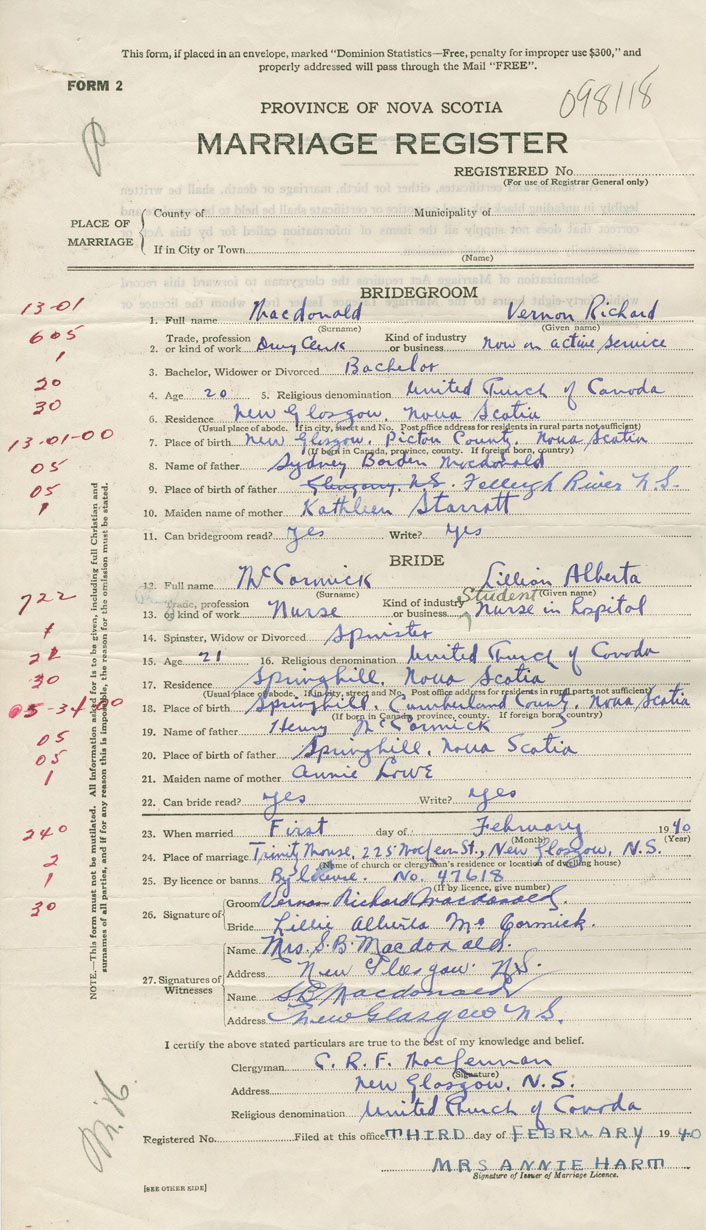 This form, if placed in an envelope, marked "Dominion Statistics—Free, penalty for improper use $300," and
properly addressed will pass through the Mail "FREE".
FORM 2
098118
PROVINCE OF NOVA SCOTIA
MARRIAGE REGISTER
REGISTERED No.
(For use of Registrar General only)
PLACE OF MARRIAGE
County of
Municipality of
If in City or Town
(Name)
BRIDEGROOM
13-01
1. Full name Macdonald Vernon Richard
(Surname) (Given name)
605
Trade, profession Kind of industry
2. or kind of work Drug Clerk or business Now on active service
1
3. Bachelor, Widower or Divorced Bachelor
20
4. Age 20 5. Religious denomination United Church of Canada
30
6. Residence New Glasgow, Nova Scotia
(Usual place of abode. If in city, street and No. Post office address for residents in rural parts not sufficient)
13-01-00
7. Place of birth New Glasgow, Pictou County, Nova Scotia
(If born in Canada, province, county. If foreign born, country)
05
8. Name of father Sydney Borden Macdonald
05
9. Place of birth of father N.S. River N.S.
1
10. Maiden name of mother Kathleen Starratt
11. Can bridegroom read? Yes Write? Yes
BRIDE
12. Full name McCormick Lillian Alberta
(Given name)
722
Trade, profession Kind of industry Student
13. or kind of work Nurse or business Nurse in hospital
1
14. Spinster, Widow or Divorced Spinster
21
15. Age 21 16. Religious denomination United Church of Canada
30
17. Residence Springhill, Nova Scotia
(Usual place of abode. If in city, street and No. Post office address for residents in rural parts not sufficient)
05-34-00
18. Place of birth Springhill, Cumberland County, Nova Scotia
(If born in Canada, province, county. If foreign born, country)
05
19. Name of father Henry McCormick
05
20. Place of birth of father Springhill, Nova Scotia
1
21. Maiden name of mother Annie Lowe
22. Can bride read? Yes Write? Yes
240
23. When married First day of February 1940
(Month) (Year)
2
24. Place of marriage Trinity Manse, 225 St., New Glasgow, N.S.
(Name of church or clergyman's residence or location of dwelling house)
1
25. By licence or banns By licence. No. 47618
(If by licence, give number)
30
26. Signature of
Groom Vernon Richard Macdonald.
Bride Lillie Alberta McCormick.
27. Signatures of Witnesses
Name Mrs. S. B. Macdonald.
Address New Glasgow N.S.
Name S B Macdonald
Address New Glasgow N.S.
I certify the above stated particulars are true to the best of my knowledge and belief.
Clergyman C. R. F. MacLennan
(Signature)
Address New Glasgow, N.S.
Religious denomination United Church of Canada
Registered No. Filed at this office THIRD day of FEBRUARY 1940
MRS ANNIE HARM
Signature of Issuer of Marriage Licence.
[SEE OTHER SIDE]
NOTE.—This form must not be mutilated. All information asked for is to be given, including full Christian and
surnames of all parties, and if for any reason this is impossible, the reason for the omission must be stated.